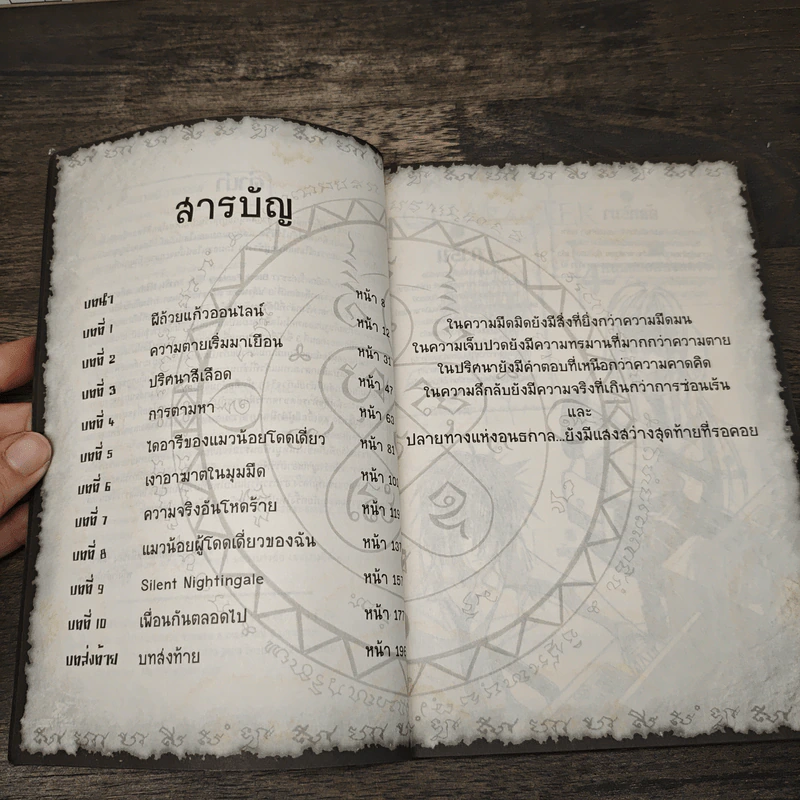 สารบัญ
บทนำ หน้า 8
บทที่ 1 ผีถ้วยแก้วออนไลน์ หน้า 12
บทที่ 2 ความตายเริ่มมาเยือน หน้า 31
บทที่ 3 ปริศนาสีเลือด หน้า 47
บทที่ 4 การตามหา หน้า 63
บทที่ 5 ไดอารีของแมวน้อยโดดเดี่ยว หน้า 81
บทที่ 6 เงาอาฆาตในมุมมืด หน้า 101
บทที่ 7 ความจริงอันโหดร้าย หน้า 119
บทที่ 8 แมวน้อยผู้โดดเดี่ยวของฉัน หน้า 137
บทที่ 9 Silent Nightingale หน้า 157
บทที่ 10 เพื่อนกันตลอดไป หน้า 177
บทส่งท้าย บทส่งท้าย หน้า 196
ในความมืดมิดยังมีสิ่งที่ยิ่งกว่าความมืดมน
ในความเจ็บปวดยังมีความทรมานที่มากกว่าความตาย
ในปริศนายังมีคำตอบที่เหนือกว่าความคาดคิด
ในความลึกลับยังมีความจริงที่เกินกว่าการซ่อนเร้น
และ
ปลายทางแห่งอนธกาล...ยังมีแสงสว่างสุดท้ายที่รอคอย